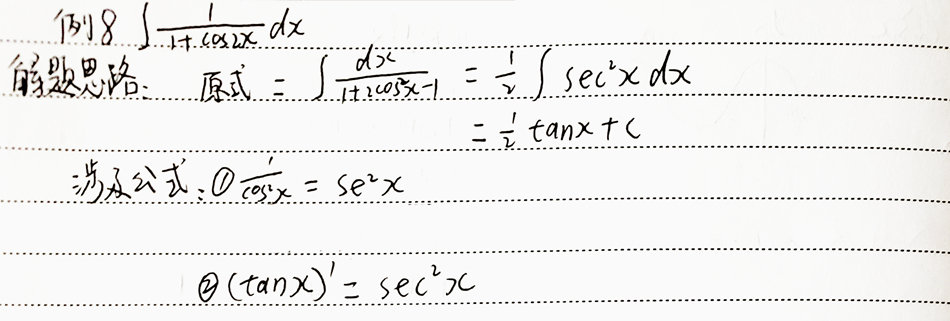 例8 ∫ 1/(1+cos2x) dx
解题思路: 原式 = ∫ dx/(1+2cos²x-1) = 1/2 ∫ sec²x dx
= 1/2 tanx + C
涉及公式: ① 1/cos²x = se²x
② (tanx)' = sec²x